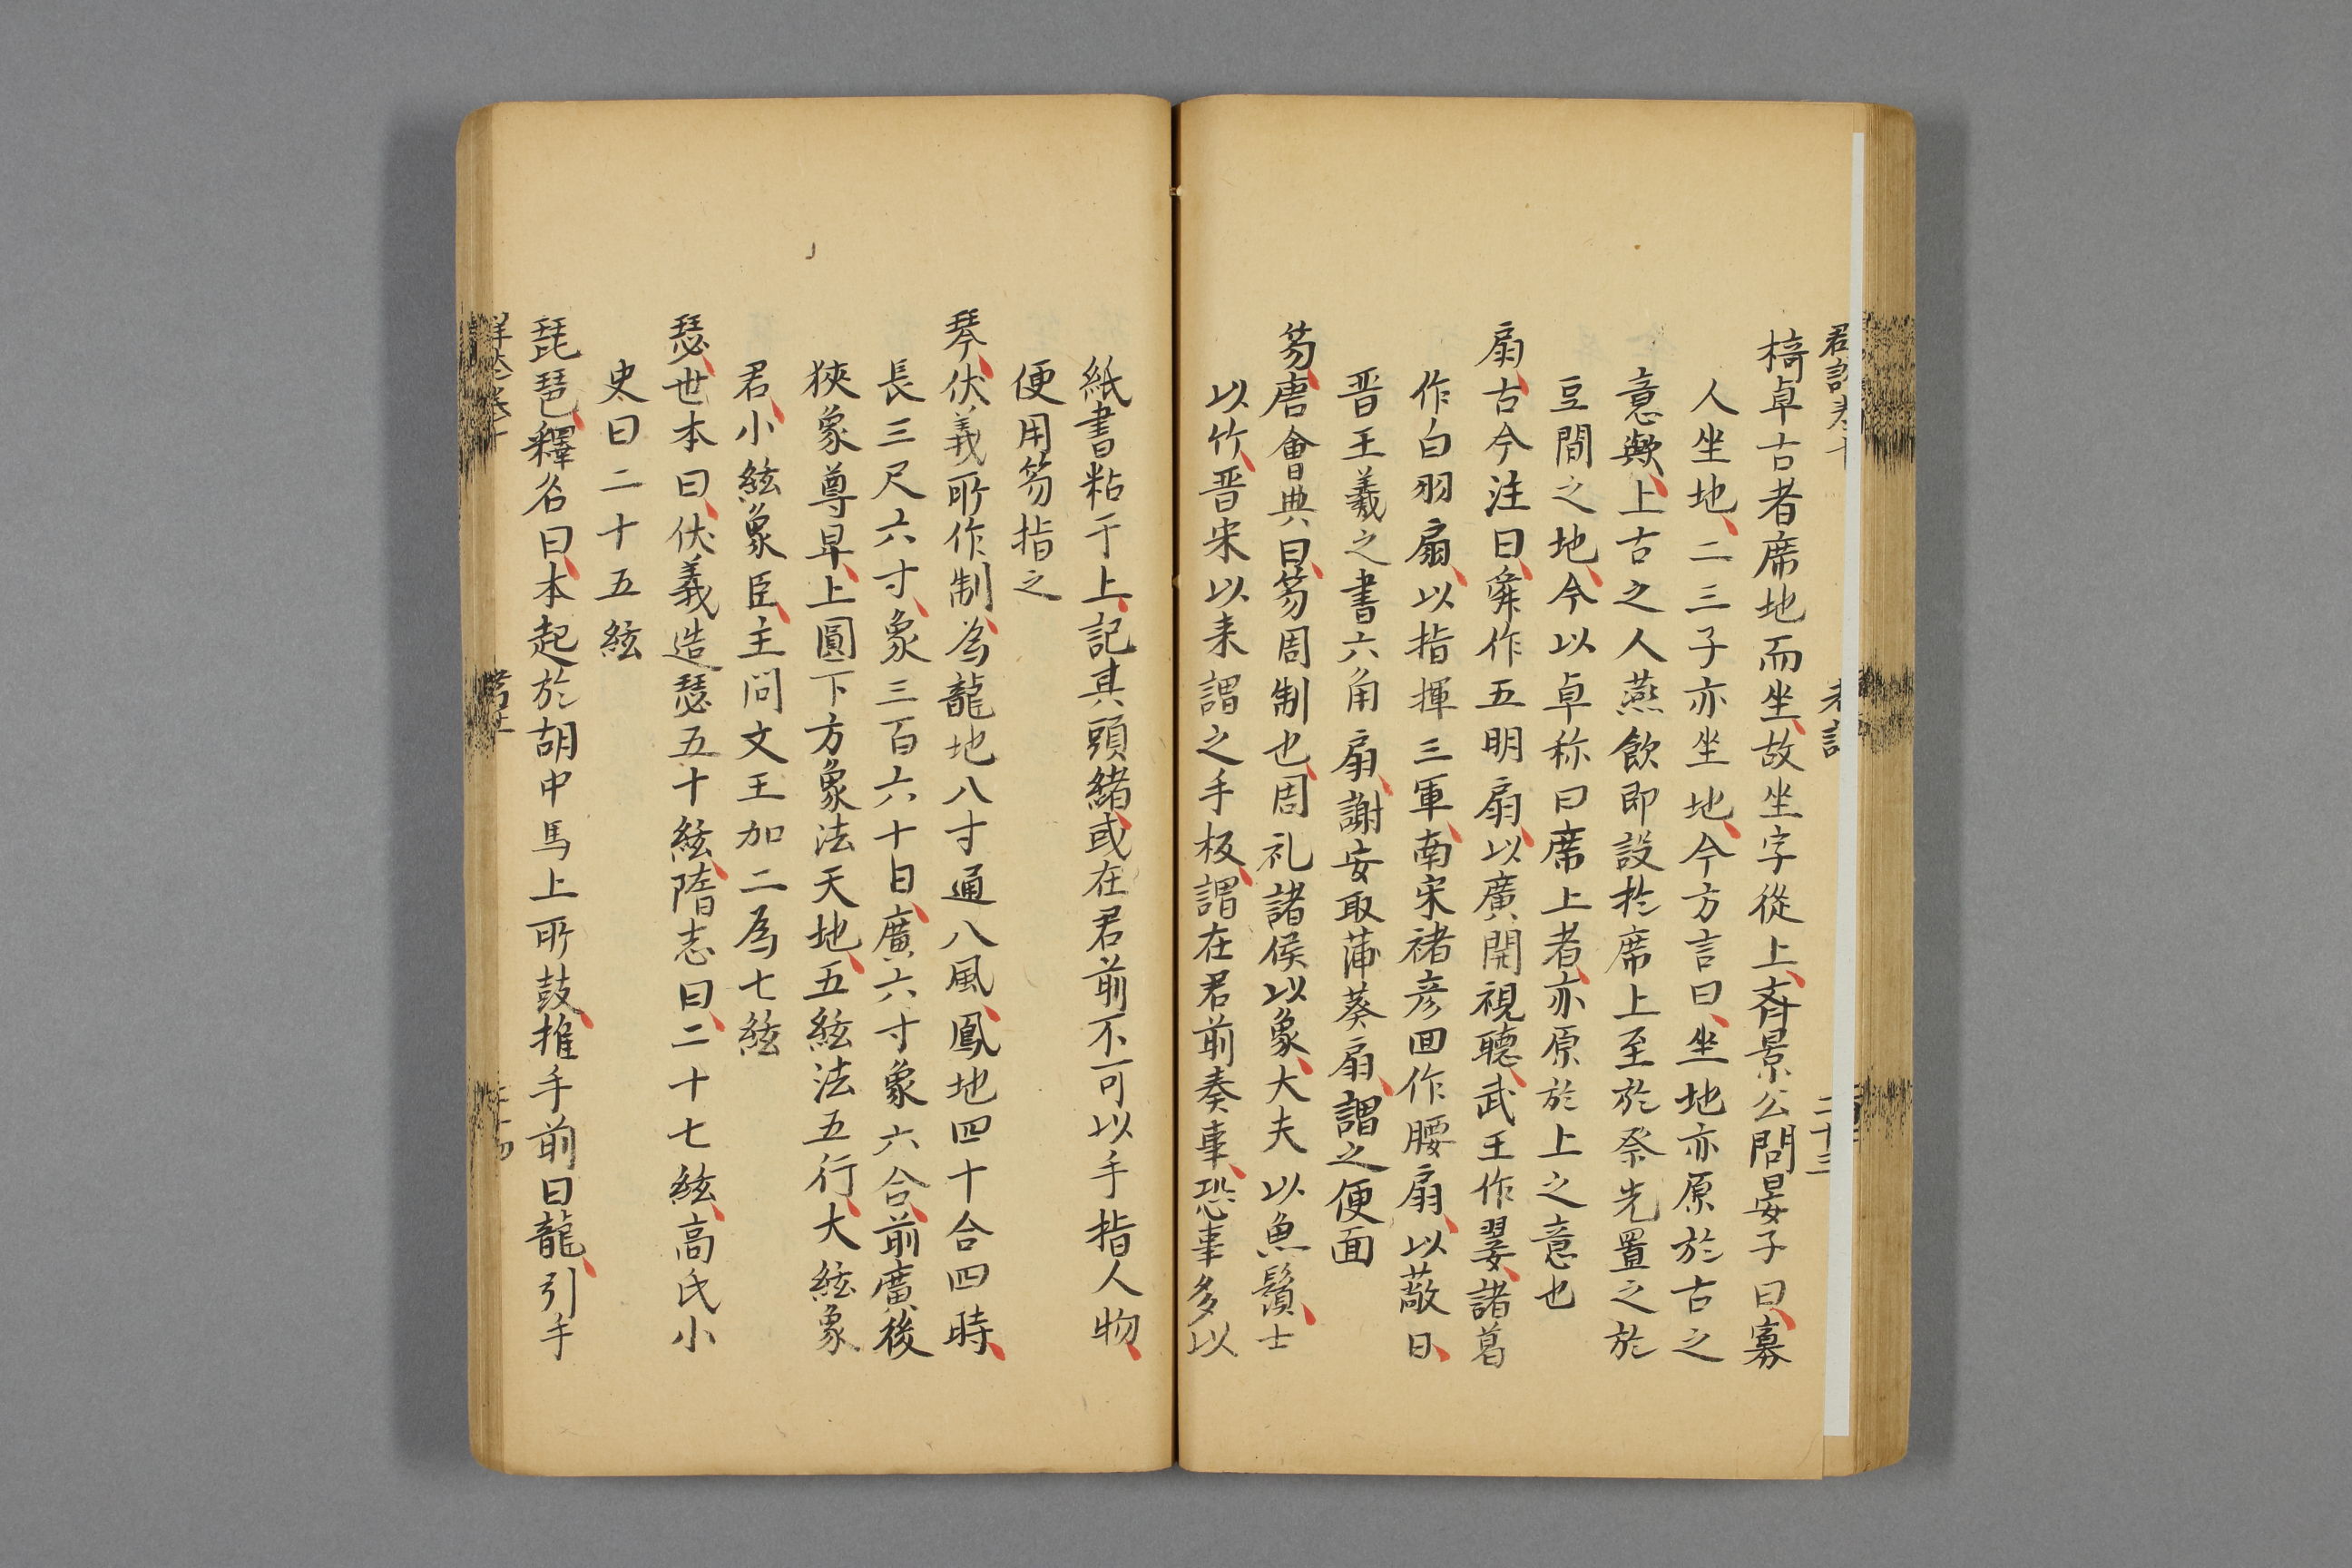 椅卓古者席地而坐、故坐字從上、斉景公問晏子曰、寡
人坐地、二三子亦坐地、今方言曰、坐地亦原於古之
意歟、上古之人燕飲即設於席上至於祭先置之於
豆間之地、今以卓称曰席上者、亦原於上之意也
扇、古今注曰、舜作五明扇、以廣開視聴、武王作翣、諸葛
作白羽扇、以指揮三軍、南宋褚彦回作腰扇、以蔽日、
晋王羲之書六角扇、謝安取蒲葵扇、謂之便面
笏、唐會典曰、笏周制也、周礼諸侯以象、大夫以魚鬚、士
以竹、晋宋以来謂之手板、謂在君前奏事、恐事多以
紙書粘于上、記其頭緒、或在君前不可以手指人物、
便用笏指之
琴、伏義所作制、為龍地八寸通八風、鳳地四十合四時、
長三尺六寸、象三百六十日、廣六寸象六合、前廣後
狹象尊卑、上圓下方象法天地、五絃法五行、大絃象
君、小絃象臣、主問文王加二為七絃
瑟、世本曰、伏羲造瑟五十絃、隋志曰、二十七絃、高氏小
史曰二十五絃
琵琶、釋名曰、本起於胡中馬上所鼓、推手前曰龍、引手